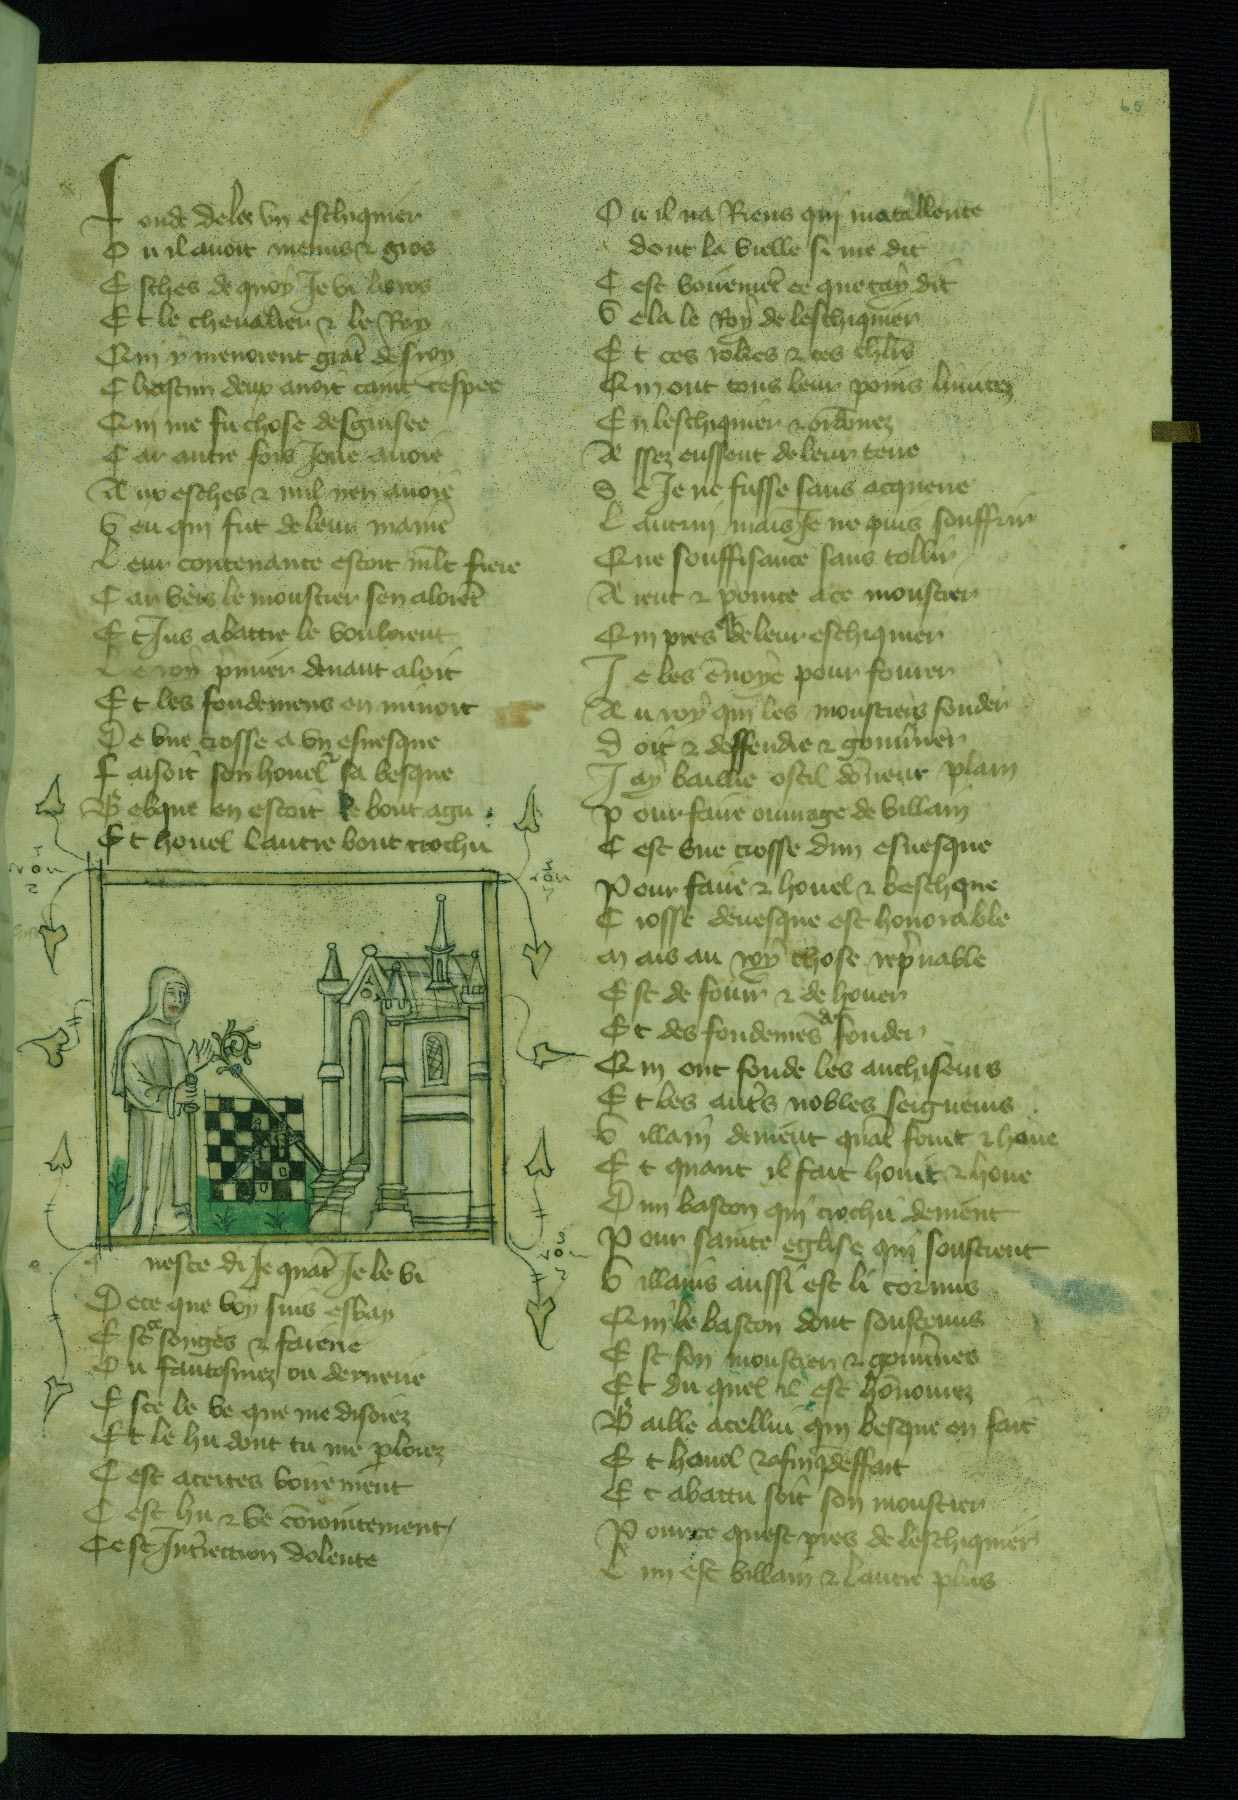 Fonde deles vn eschiquier
Ou il auoit menus & gros
Esches de quoy Je vi les ros
Et le cheualier & le Roy
Qui y menoient grāt desroy
Chascun deux auoit cainte espee
Qui me fu chose desguisee
Car autre fois Joue auoie
Aux esches & nul nen auoie
Veu qui fut de leur maniē
Leur contenance estoit mlt fiere
Car vers le moustier sen aloiēt
Et Jus abattre le vouloient
Le roy p̄mier deuant aloit
Et les fondemens en minoit
De vne crosse a vn euesque
Faisoit son houel & sa besque
Besque en estoit le bout agu
Et houel lautre bout crochu
Quest ce di Je quāt Je le vi
De ce que voy suis esbay
Est ce songes & faierie
Ou fantosmez ou deruerie
Est ce le ve que me disoiez
Et le hu dont tu me ploiez
Cest acertes voiremēt
Cest hu & ve cōioinctement
Cest Intriection dolente
Ou il na Riens qui matallente
Adont la vielle si me dit
Cest voiremēt ce que tay dit
Vela le Roy de leschiquier
Et ces robes & ces chl̄rs
Qui ont tous leur poins limitez
En leschiquier & ordōnez
Assez eussent de leur terre
Se Je ne fusse sans acquerre
Lautrui mais Je ne puis souffrir
Que souffisance sans tollir
Aient & pointe a ce moustier
Qui pres est de leur eschiquier
Je les ēuoye pour fouier
Au roy qui les moustiers fonder
Doit & deffendre & gouūner
Jay baillie ostil dōneur plain
Pour faire ouurage de villain
Cest vne crosse dun euesque
Pour faire & houel & beschque
Crosse deuesque est honorable
Mais au roy chose rep̄uable
Est de fouir & de houer
Et des fondemēs de fonder
Qui ont fonde les anchiseurs
Et les autrs nobles seigneurs
Villain deuient qāt fouit & houe
Et quant il fait houit & houe
Dun baston qui crochu deuient
Pour saincte eglise qui soustient
Villains aussi est li cornus
Qui le baston dont soustenus
Est son moustier & gouūnes
Et du quel il est hōnourez
Baille a cellui qui besque en fait
Et houel & afin q̄ deffait
Et abattu soit son moustier
Pour ce quest pres de leschiquier
Lun est villain & lautre plus